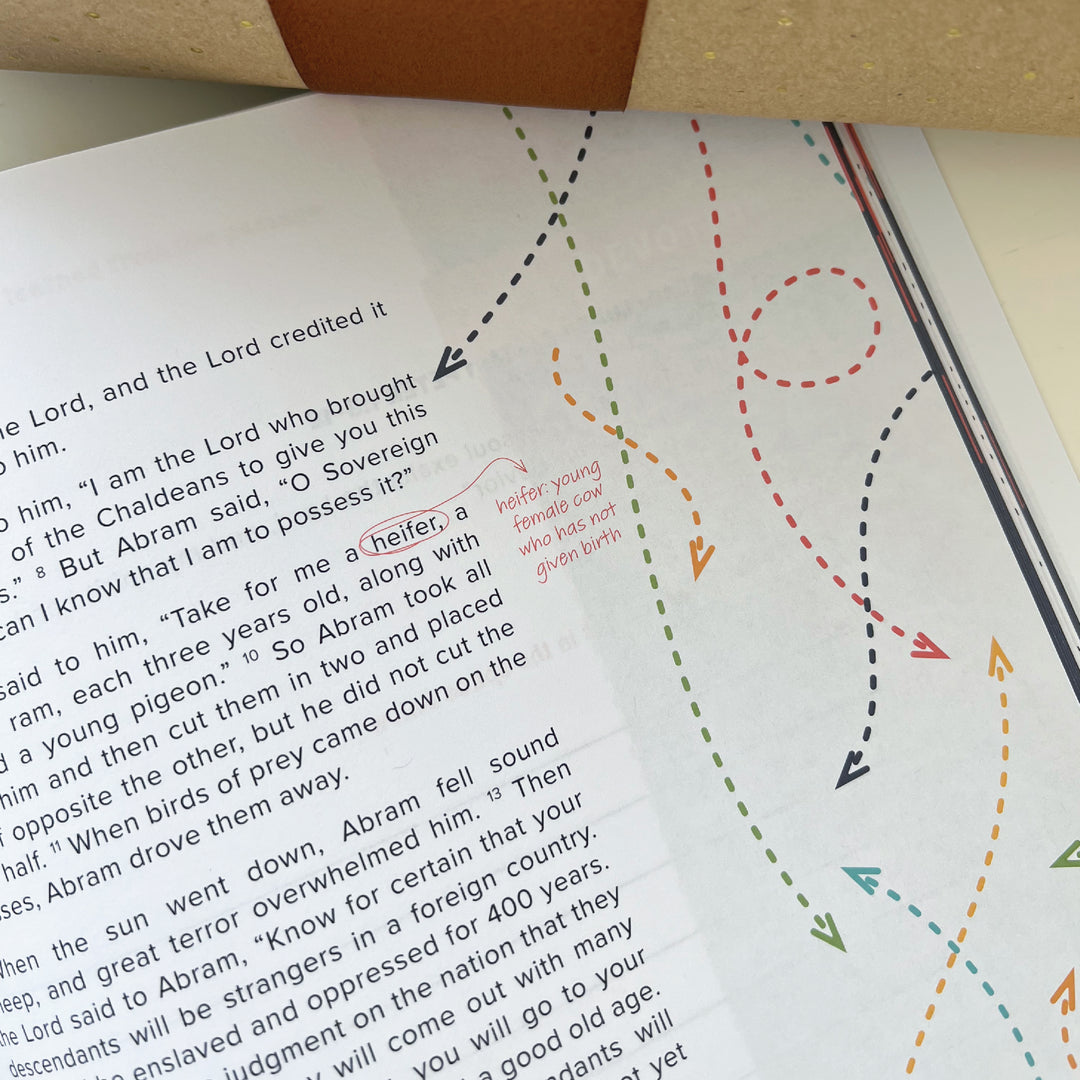 Lord, and the Lord credited it
him.
him, “I am the Lord who brought
of the Chaldeans to give you this
.” 8 But Abram said, “O Sovereign
can I know that I am to possess it?”
said to him, “Take for me a heifer, a
ram, each three years old, along with
a young pigeon.” 10 So Abram took all
him and then cut them in two and placed
opposite the other, but he did not cut the
half. 11 When birds of prey came down on the
Abram drove them away.
heifer: young
female cow
who has not
given birth
When the sun went down, Abram fell sound
and great terror overwhelmed him. 13 Then
the Lord said to Abram, “Know for certain that your
descendants will be strangers in a foreign country.
enslaved and oppressed for 400 years.
judgment on the nation that they
will come out with many
you will go to your
a good old age.
will
yet